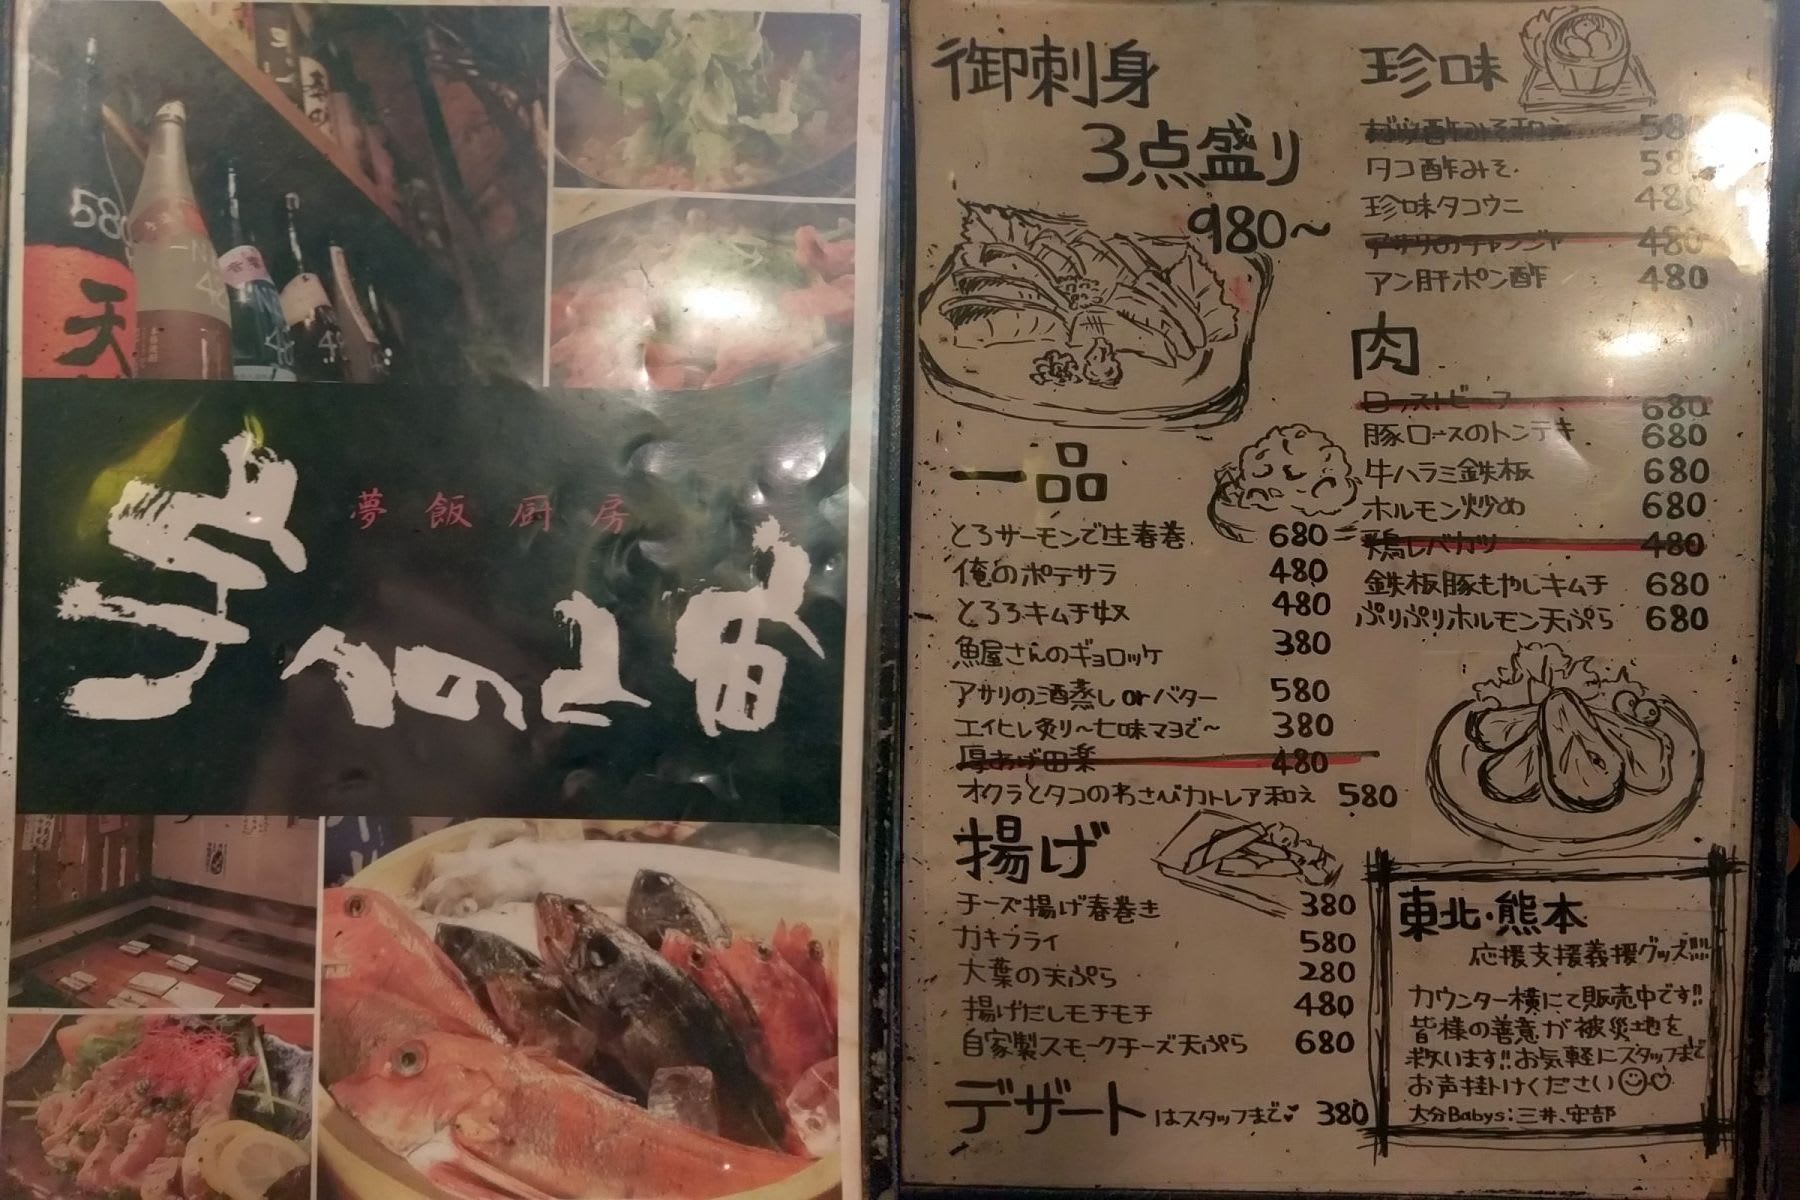 夢飯厨房
御刺身
3点盛り
980〜
一品
とろサーモンで生春巻 680
俺のポテサラ 480
とろろキムチ奴 480
魚屋さんのギョロッケ 380
アサリの酒蒸しorバター 580
エイヒレ炙り〜七味マヨで〜 380
厚あげ田楽 480
オクラとタコのわさびカトレア和え 580
揚げ
チーズ揚げ春巻き 380
カキフライ 580
大葉の天ぷら 280
揚げだしモチモチ 480
自家製スモークチーズ天ぷら 680
デザートはスタッフまで♥ 380
珍味
酢みそ和え 580
タコ酢みそ 580
珍味タコウニ 480
アサリのチャンジャ 480
アン肝ポン酢 480
肉
ローストビーフ 680
豚ロースのトンテキ 680
牛ハラミ鉄板 680
ホルモン炒め 680
鶏レバカツ 480
鉄板豚もやしキムチ 680
ぷりぷりホルモン天ぷら 680
東北・熊本
応援支援義援グッズ!!!
カウンター横にて販売中です!!
皆様の善意が被災地を
救います!!お気軽にスタッフまで
お声掛けください☺♡
大分Babys:三井、安部